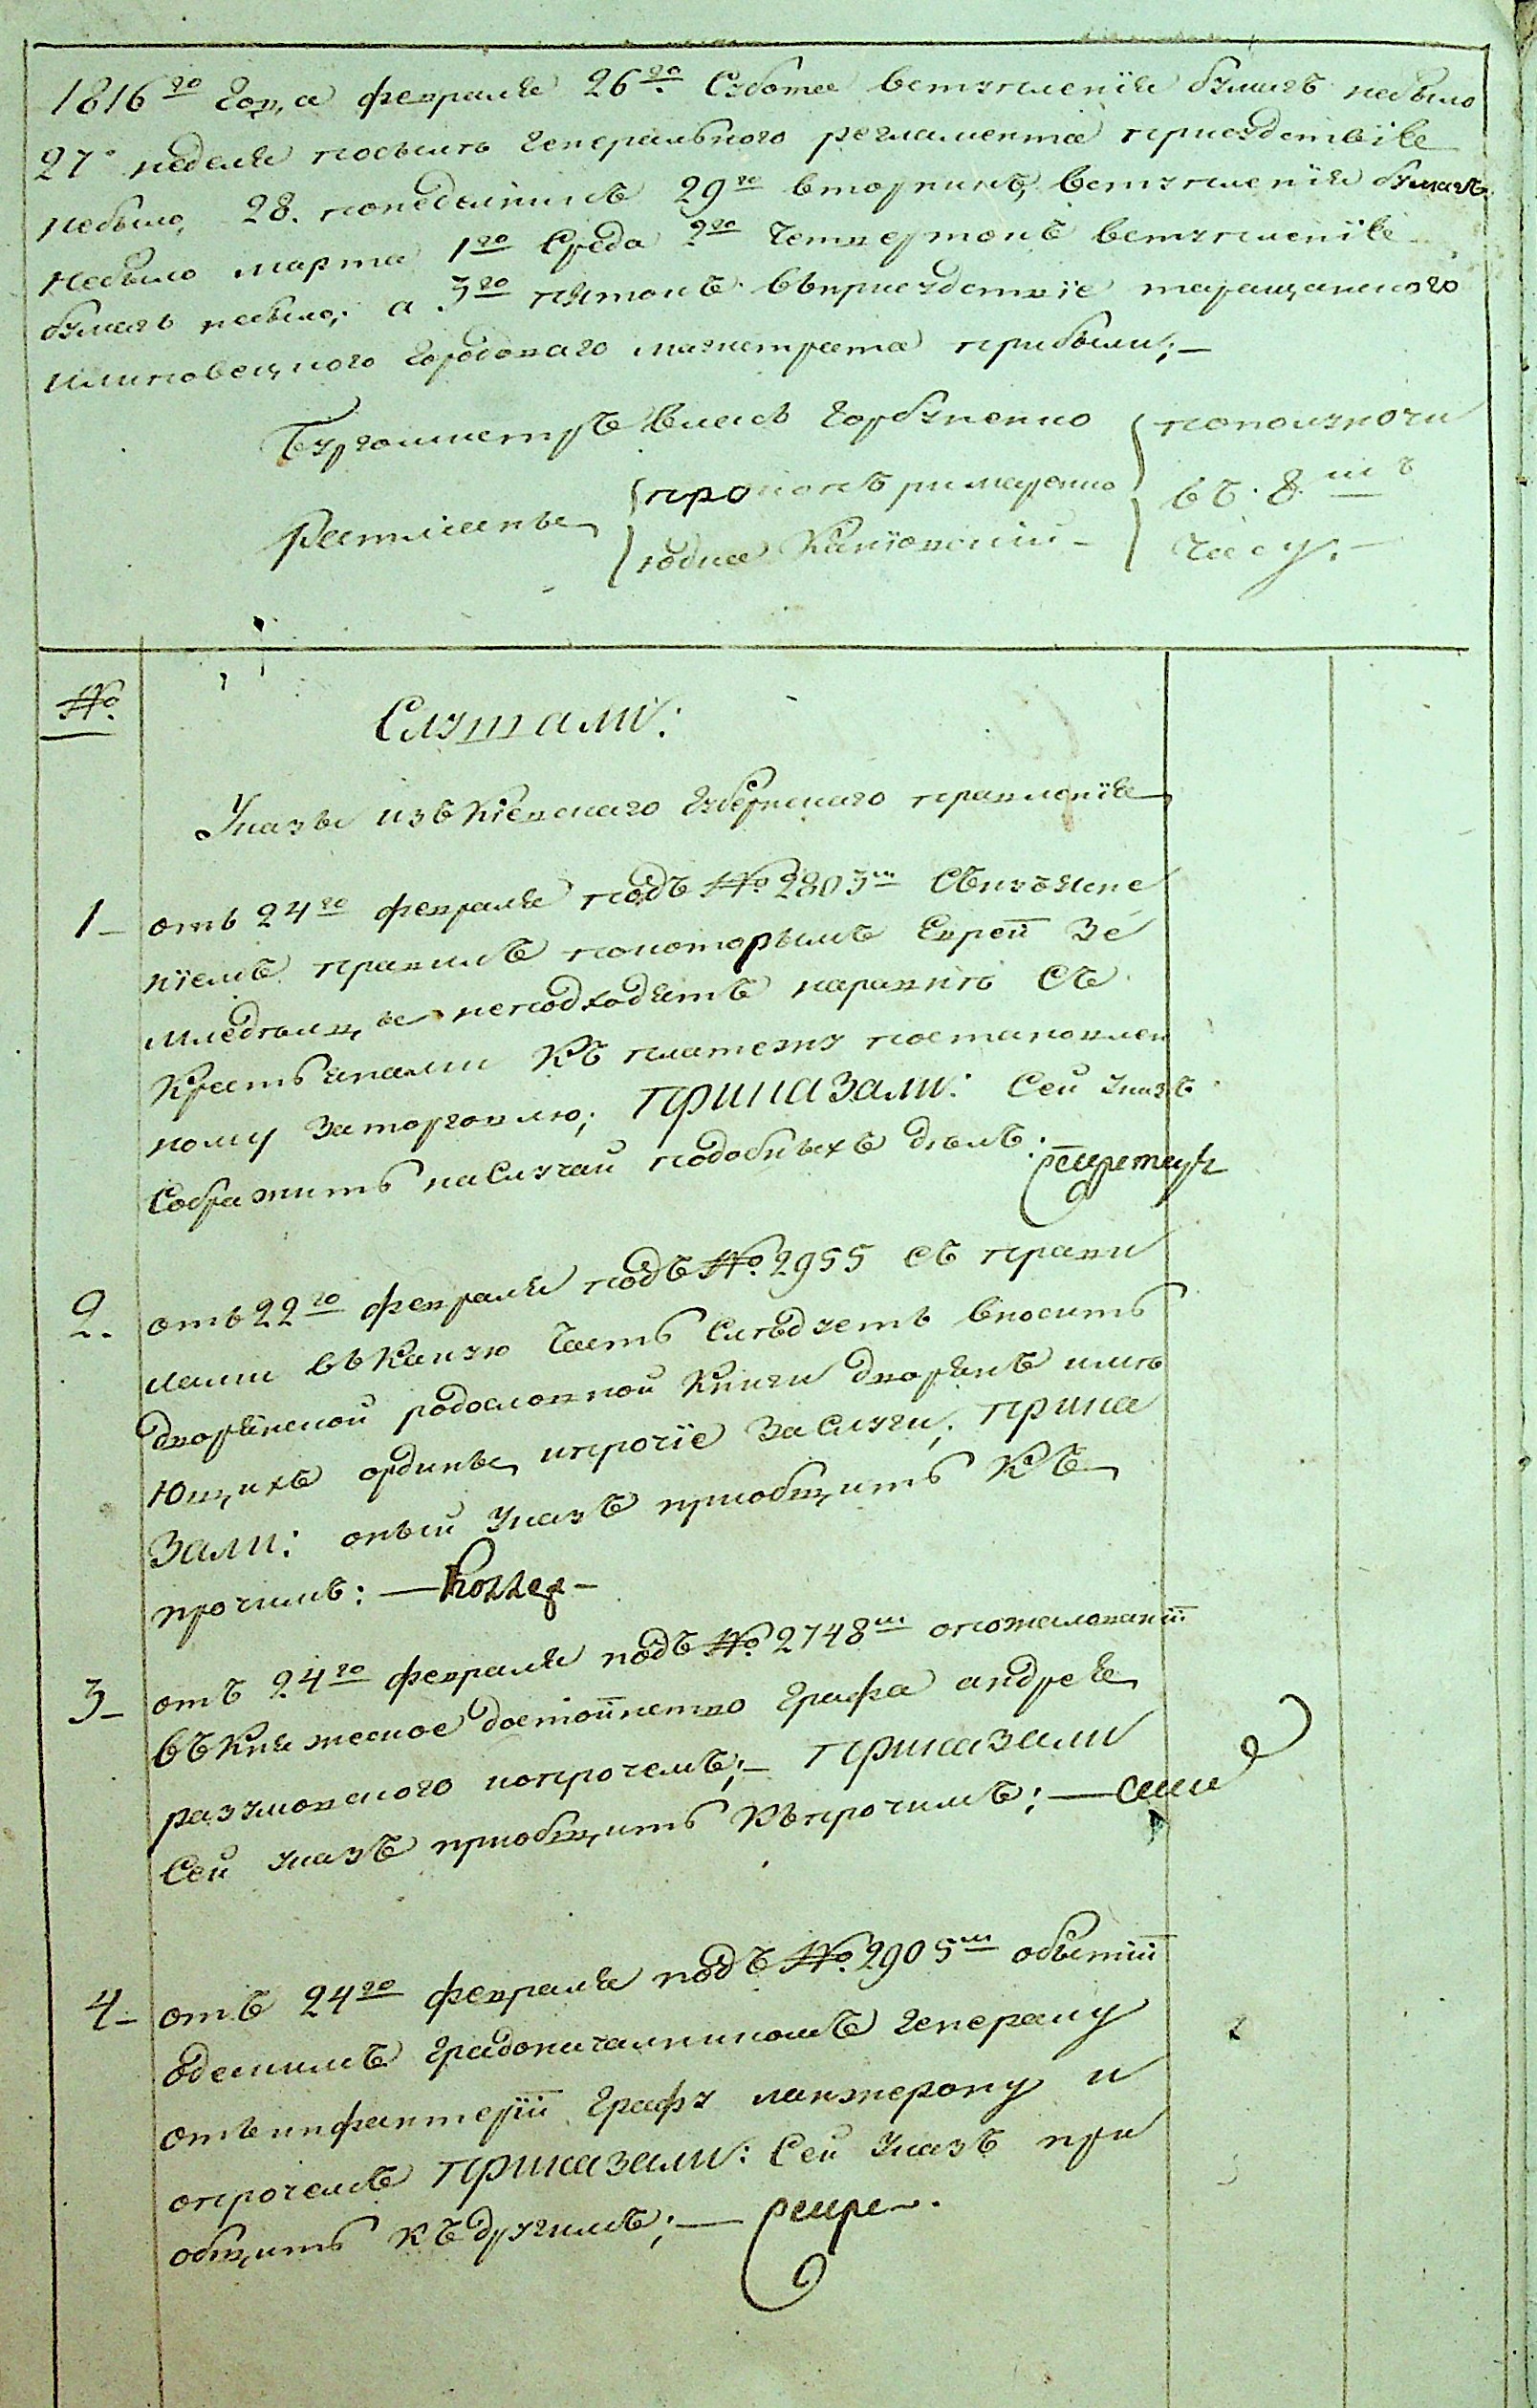 1816го года февраля 26го Субота вступленїя бумагъ небыло
27го неделя посылъ генералного регламента присудствїя
небыло, 28. понеделникъ 29го вторникъ, вступленїя бумагъ
небыло марта 1го Среда 2го Четвертокъ вступленїя
бумагъ небыло; а 3го пятокъ въприсудствїе таращанского
илиповецкого городового магистрата прибыли;—
Бургомистръ Власъ Горбуненко
по полуночи
Ратманы
прокопъ римаренко
въ. 8ш
юдка Канювский —
часу. —
№
Слушали:
Указы изъ Кїевскаго Губернскаго правленїя
1— отъ 24го февраля подъ № 2803ш Съизъясне
нїемъ правилъ покоторымъ Евреи Зе
мледелцы неподходятъ наравнѣ Съ
Крестьянами Къ платежу постановлен
ному Заторговлю; приказали: Сей указъ
Собразить наСлучай подобныхъ дѣлъ. Секретарь
2. отъ 22го февраля подъ № 2955 съ прави
лами въ Какую Часть Слѣдуетъ вносить
дворянской родословной Книги дворянъ имѣ
ющихъ ордины, ипрочїе Заслуги; прика
Зали: оный Указъ приобщить Къ
прочимъ: —
3— отъ 24го февраля подъ № 2748ш опожалованїи
въКняжеское достоинство Графа андрея
разумовского ипрочемъ;— приказали
Сей указъ приобщить Къпрочимъ; —
4— отъ 24го февраля подъ № 2905ш обытїи
одескимъ градоначалникомъ генералу
отъинфантерїи Графу ланжерону и
опрочемъ приказали: Сей Указъ при
общить къдругимъ; — Секре